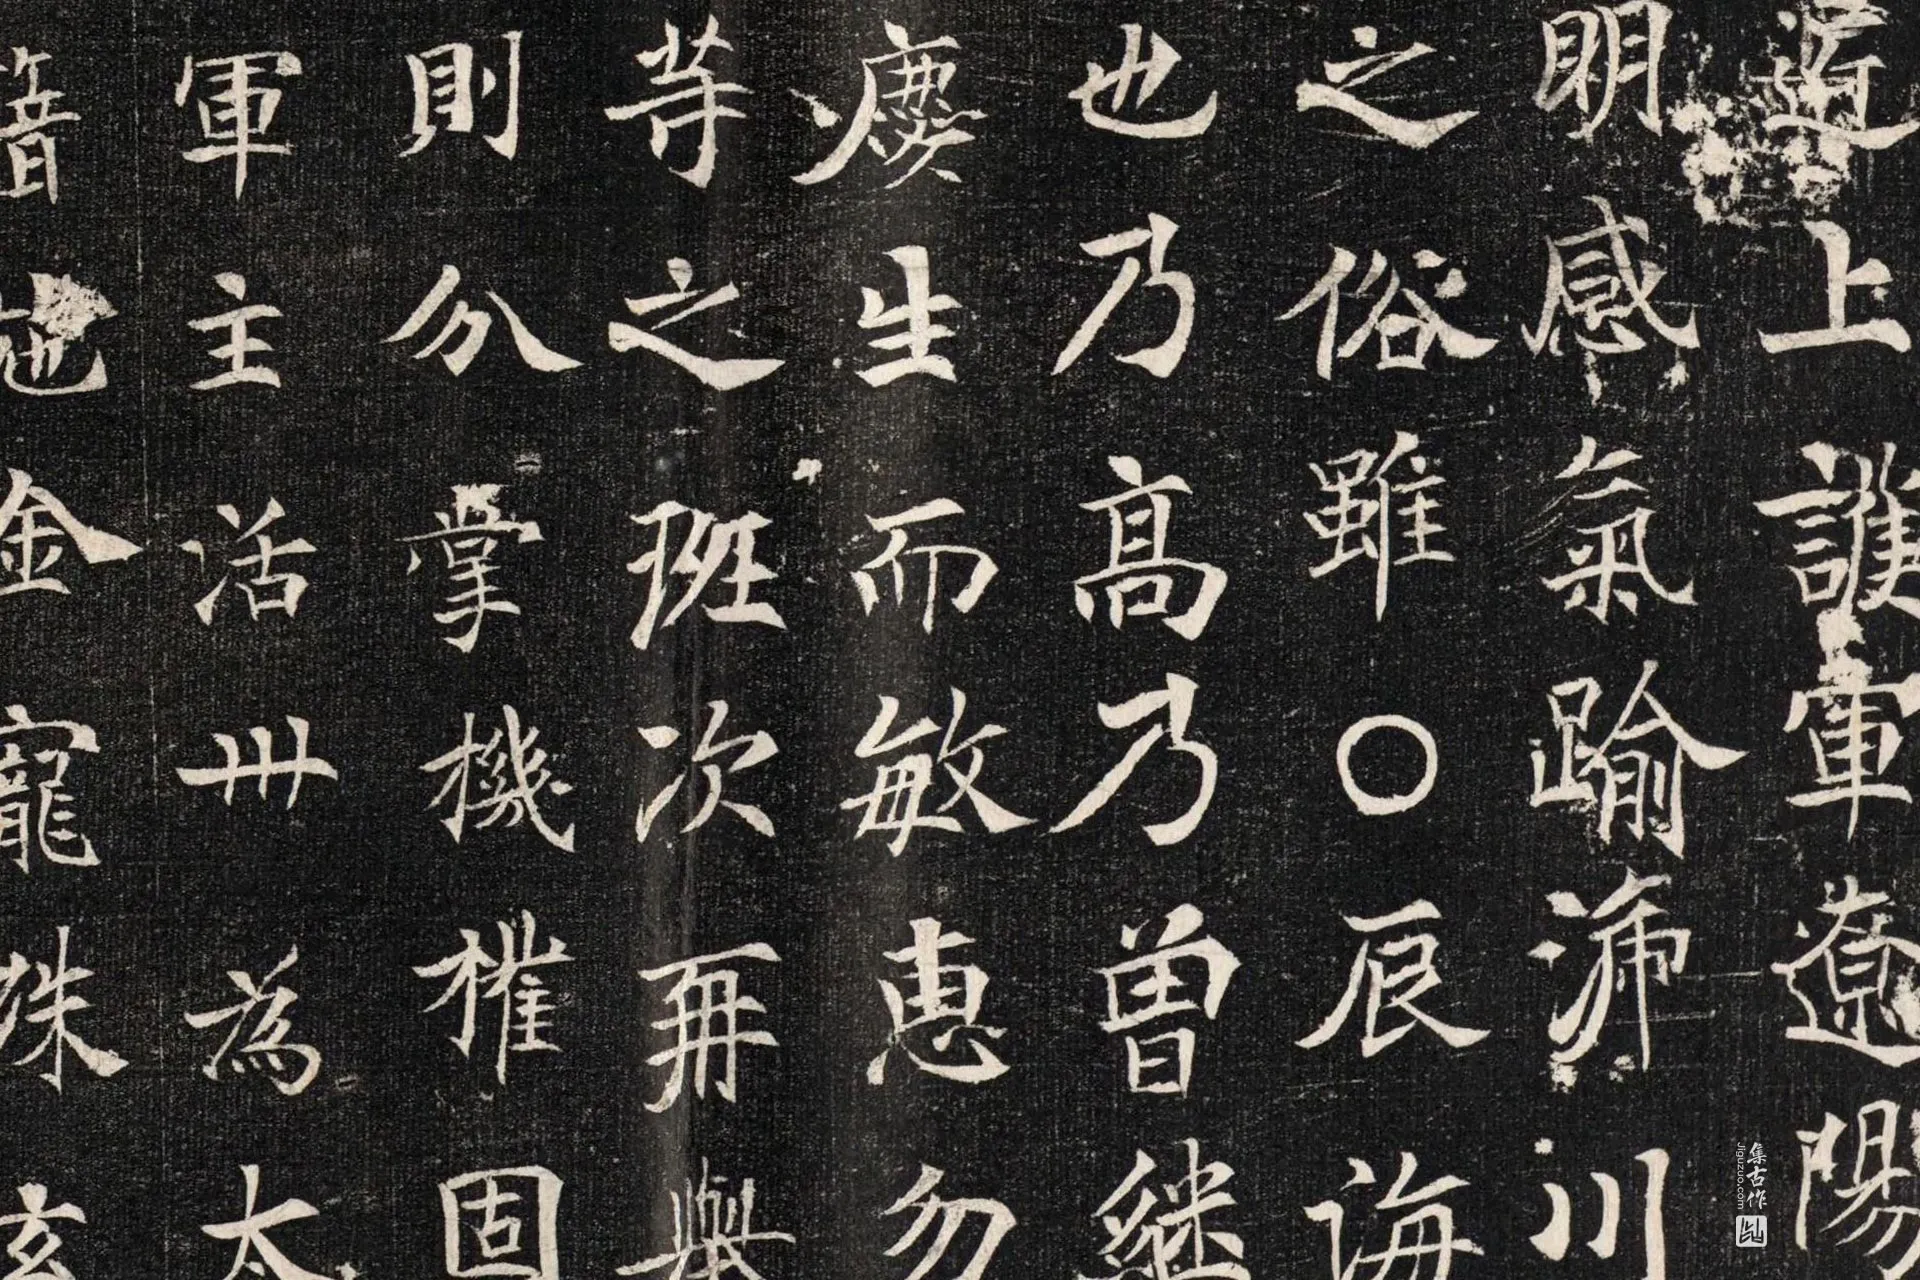 近上護軍遼陽
明感氣踰沛川
之俗雖〇辰海
也乃高乃曾繼
慶生而敏惠勿
等之班次再舉
則分掌機權固
軍主活卌為太
籍地金寵殊玄
集古作
Jiguzuo.com